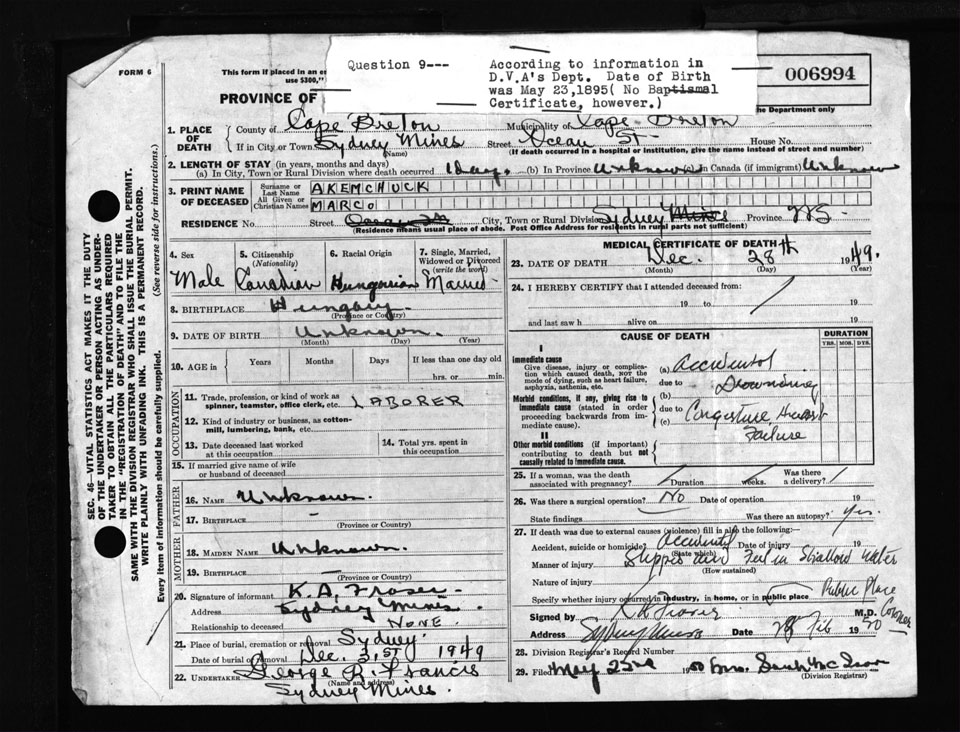 FORM 6
This form if placed in an
use $300,"
PROVINCE OF
Question 9---
According to information in
D.V.A's Dept. Date of Birth
was May 23,1895( No Baptismal
Certificate, however.)
006994
the Department only
1. PLACE OF DEATH
County of Cape Breton Municipality of Cape Breton
If in City or Town Sydney Mines Street Ocean St. House No.
(Name) (If death occurred in a hospital or institution, give the name instead of street and number)
2. LENGTH OF STAY (in years, months and days)
(a) In City, Town or Rural Division where death occurred 1 day. (b) In Province Unknown (c) in Canada (if immigrant) Unknown
3. PRINT NAME OF DECEASED
Surname or Last Name AKEMCHUCK
All Given or Christian Names MARCO
RESIDENCE No. Street City, Town or Rural Division Sydney Mines Province
(Residence means usual place of abode. Post Office Address for residents in rural parts not sufficient)
4. Sex Male
5. Citizenship (Nationality) Canadian
6. Racial Origin Hungarian
7. Single, Married, Widowed or Divorced (write the word) Married
8. BIRTHPLACE Hungary.
(Province or Country)
9. DATE OF BIRTH Unknown.
(Month) (Day) (Year)
10. AGE in Years Months Days If less than one day old
hrs. or min.
OCCUPATION
11. Trade, profession, or kind of work as
spinner, teamster, office clerk, etc. LABORER
12. Kind of industry or business, as cotton-
mill, lumbering, bank, etc.
13. Date deceased last worked
at this occupation
14. Total yrs. spent in
this occupation
15. If married give name of wife
or husband of deceased
FATHER
16. NAME Unknown.
17. BIRTHPLACE –
(Province or Country)
MOTHER
18. MAIDEN NAME Unknown.
19. BIRTHPLACE –
(Province or Country)
20. Signature of informant K. A. Fraser
Address Sydney Mines.
Relationship to deceased NONE.
21. Place of burial, cremation or removal Sydney.
Date of burial or removal Dec. 31st 1949
22. UNDERTAKER George R. Francis
(Name and address)
Sydney Mines.
MEDICAL CERTIFICATE OF DEATH
23. DATE OF DEATH Dec. 28th 1949.
(Month) (Day) (Year)
24. I HEREBY CERTIFY that I attended deceased from:
19 to 19
and last saw h alive on 19
CAUSE OF DEATH
DURATION
YRS. MOS. DYS.
I
Immediate cause
Give disease, injury or complica-
tion which caused death, NOT the
mode of dying, such as heart failure,
asphyxia, asthenia, etc.
(a) Accidental
due to Drownding
Morbid conditions, if any, giving rise to
immediate cause (stated in order
proceeding backwards from im-
mediate cause).
(b)
due to Congestive Heart
(c) Failure
II
Other morbid conditions (if important)
contributing to death but not
causally related to immediate cause.
25. If a woman, was the death
associated with pregnancy? Duration weeks. Was there a delivery?
26. Was there a surgical operation? No Date of operation 19
State findings Was there an autopsy? Yes.
27. If death was due to external causes (violence) fill in also the following:—
Accident, suicide or homicide? Accidental Date of injury 19
(State which)
Manner of injury Slipped and Fell in Shallow Water
(How sustained)
Nature of injury
Specify whether injury occurred in industry, in home, or in public place Public Place
Signed by K A Fraser M.D. Coroner
Address Sydney Mines Date 28 Feb 1950
28. Division Registrar's Record Number
29. Filed May 23rd 1950 Mrs. Sarah
(Division Registrar)
SEC. 46—VITAL STATISTICS ACT MAKES IT THE DUTY
OF THE UNDERTAKER OR PERSON ACTING AS UNDER-
TAKER TO OBTAIN ALL THE PARTICULARS REQUIRED
IN THE "REGISTRATION OF DEATH" AND TO FILE THE
SAME WITH THE DIVISION REGISTRAR WHO SHALL ISSUE THE BURIAL PERMIT.
WRITE PLAINLY WITH UNFADING INK. THIS IS A PERMANENT RECORD.
Every item of information should be carefully supplied. (See reverse side for instructions.)